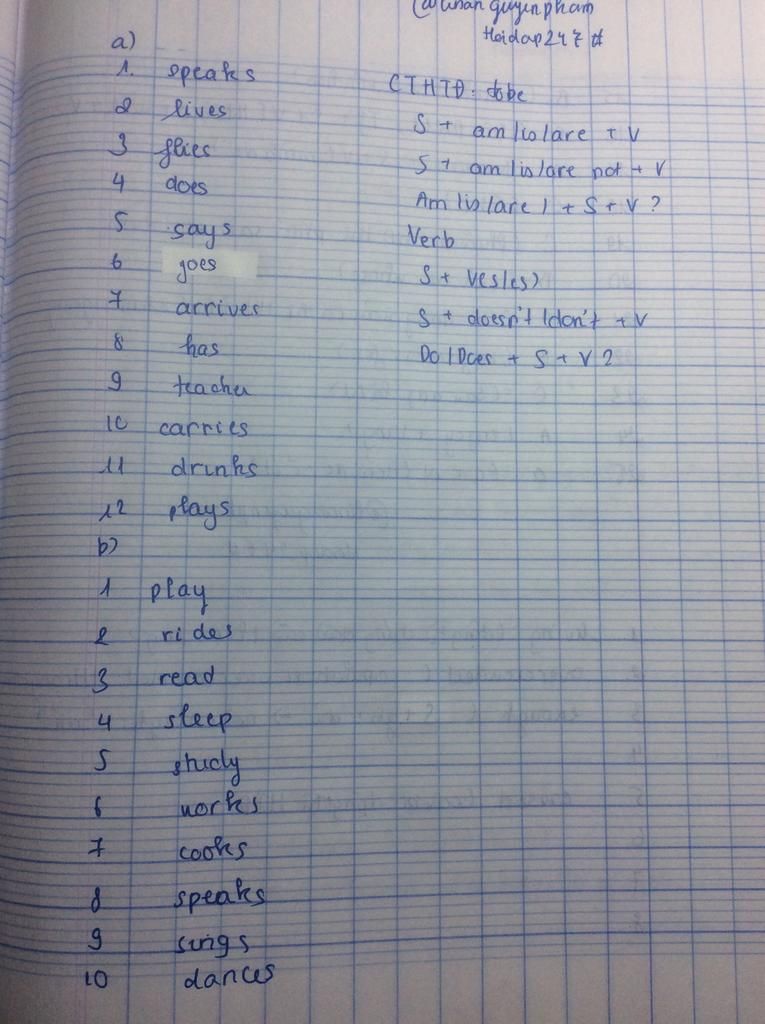 Hoidap247 #
a)
1. speaks
2 lives
3 flies
4 does
5 says
6 goes
7 arrives
8 has
9 teacher
10 carries
11 drinks
12 plays
CTHTĐ: tobe
S + am/is/are + V
S + am/is/are not + V
Am/is/are ) + S + V ?
Verb
S + V(s/es)
S + doesn't/don't + V
Do/Does + S + V ?
b)
1 play
2 rides
3 read
4 sleep
5 study
6 works
7 cooks
8 speaks
9 sings
10 dances